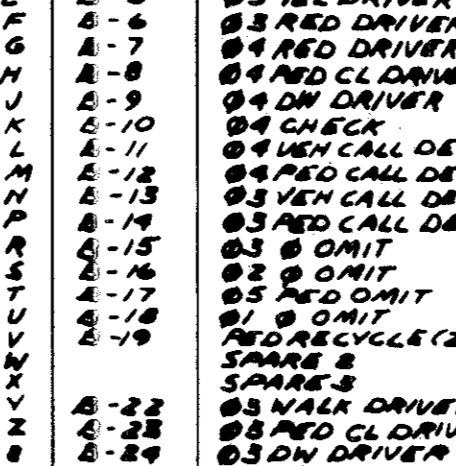 F A-6 Ø3 RED DRIVER
G A-7 Ø4 RED DRIVER
H A-8 Ø4 PED CL DRIVE
J A-9 Ø4 DW DRIVER
K A-10 Ø4 CHECK
L A-11 Ø4 VEH CALL DE
M A-12 Ø4 PED CALL DE
N A-13 Ø3 VEH CALL DE
P A-14 Ø3 PED CALL DE
R A-15 Ø3 Ø OMIT
S A-16 Ø2 Ø OMIT
T A-17 Ø5 PED OMIT
U A-18 Ø1 Ø OMIT
V A-19 PED RECYCLE (2
W SPARE 2
X SPARE 3
Y A-22 Ø3 WALK DRIVE
Z A-23 Ø3 PED CL DRIV
A-24 Ø3 DW DRIVER